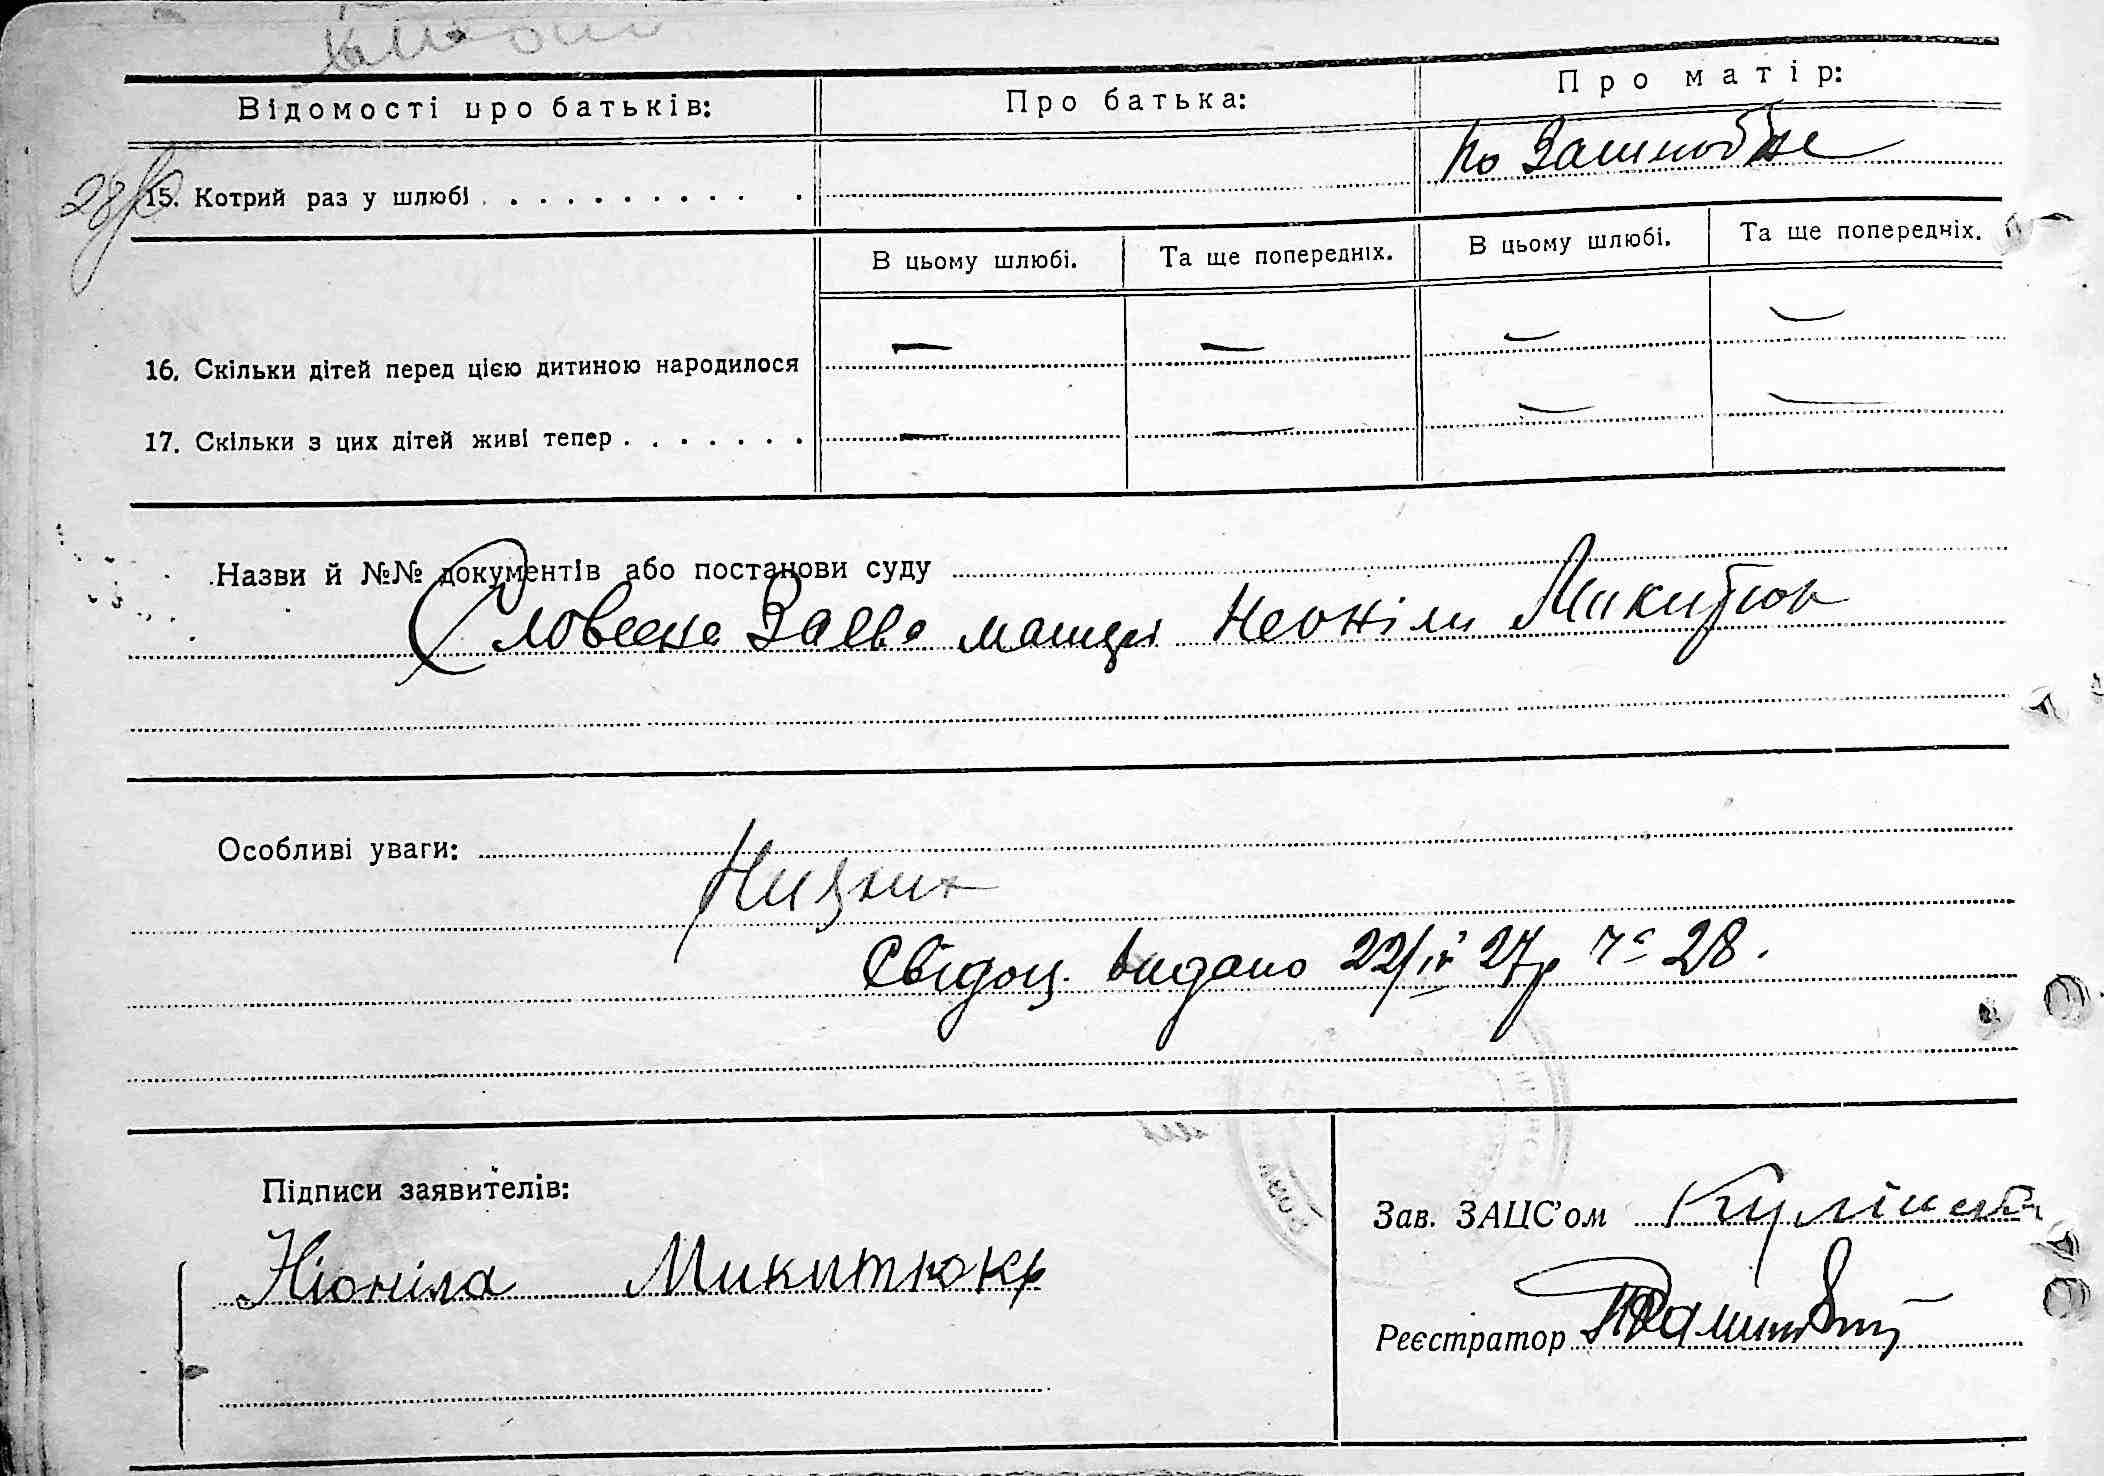 Відомості про батьків:
Про батька:
Про матір:
15. Котрий раз у шлюбі
В цьому шлюбі.
Та ще попередніх.
В цьому шлюбі.
Та ще попередніх.
16. Скільки дітей перед цією дитиною народилося
17. Скільки з цих дітей живі тепер
Назви й №№ документів або постанови суду
Словесна Заява матери Неоніли Микитюк
Особливі уваги:
Свідоц. видано 22/IV 27р 28.
Підписи заявителів:
Ніоніла Микитюкр
Зав. ЗАЦС'ом
Реєстратор